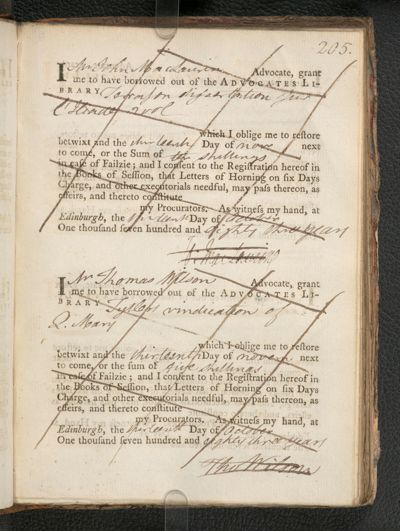 205.
I Mr John MacLaurin Advocate, grant
me to have borrowed out of the ADVOCATES LI-
BRARY
2 vol.
which I oblige me to reſtore
betwixt and the thirteenth Day of novr. next
to come, or the Sum of ten shillings
in caſe of Failzie; and I conſent to the Regiſtration hereof in
the Books of Seſſion, that Letters of Horning on ſix Days
Charge, and other executorials needful, may paſs thereon, as
effeirs, and thereto conſtitute
my Procurators. As witneſs my hand, at
Edinburgh, the thirteenth Day of October
One thouſand ſeven hundred and eighty three years
I Mr Thomas Wilson Advocate, grant
me to have borrowed out of the ADVOCATES LI-
BRARY Tytlers vindication of
Q. Mary
which I oblige me to reſtore
betwixt and the thirteenth Day of novem. next
to come, or the ſum of five shillings
in caſe of Failzie; and I conſent to the Regiſtration hereof in
the Books of Seſſion, that Letters of Horning on ſix Days
Charge, and other executorials needful, may paſs thereon, as
effeirs, and thereto conſtitute
my Procurators. As witneſs my hand, at
Edinburgh, the thirteenth Day of October
One thouſand ſeven hundred and eighty three years
Tho Wilson